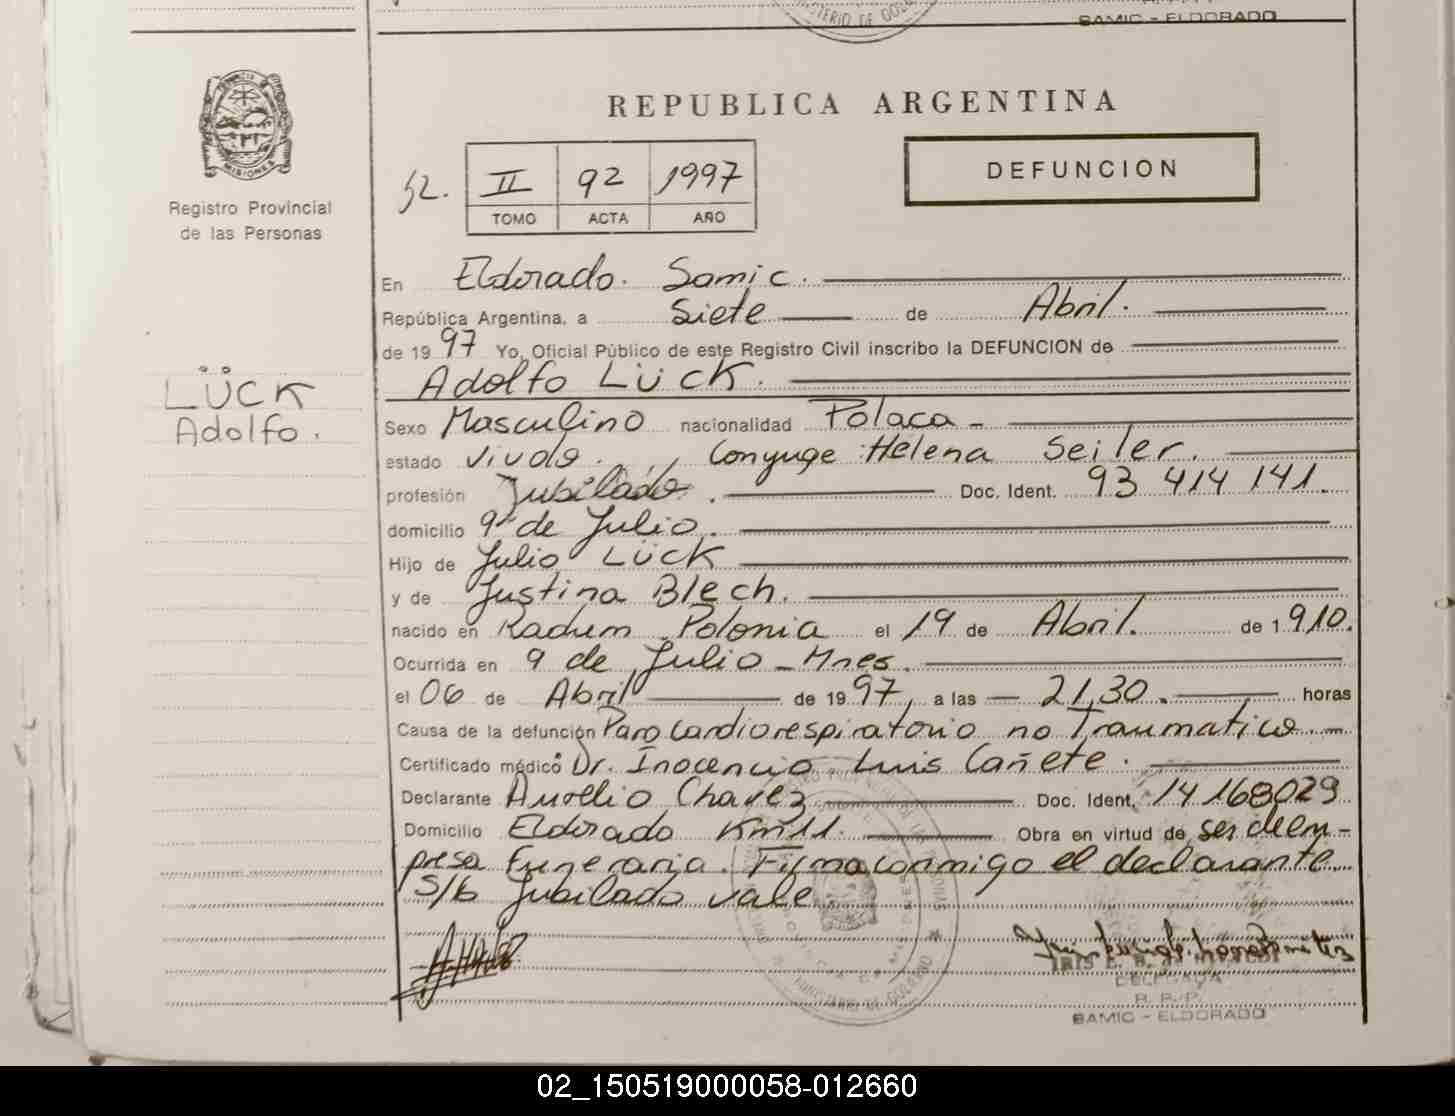 MINISTERIO DE GOB
SAMIC - ELDORADO
PROVINCIA DE
MISIONES
Registro Provincial
de las Personas
REPUBLICA ARGENTINA
DEFUNCION
52. II 92 1997
TOMO ACTA AÑO
En Eldorado. Samic.
República Argentina, a Siete de Abril.
de 1997 Yo, Oficial Público de este Registro Civil inscribo la DEFUNCION de
Adolfo LÜCK.
LÜCK
Adolfo.
Sexo Masculino nacionalidad Polaca -
estado viudo. Conyuge Helena Seiler.
profesión Jubilado. Doc. Ident. 93 414 141.
domicilio 9 de Julio.
Hijo de Julio LÜCK
y de Justina Blech.
nacido en Radum Polonia el 19 de Abril. de 1910.
Ocurrida en 9 de Julio - Mnes.
el 06 de Abril de 1997, a las 21,30. horas
Causa de la defunción Paro Cardiorespiratorio no Traumatico.
Certificado médico Dr. Inocencio Luis Cañete.
Declarante Aurelio Chavez Doc. Ident. 14168029
Domicilio Eldorado Km 11. Obra en virtud de ser de em-
presa Funeraria. Firma conmigo el declarante
S/b Jubilado vale.
MINISTERIO DE GOBIERNO
DELEGADA
R. P. P.
SAMIC - ELDORADO
02_150519000058-012660